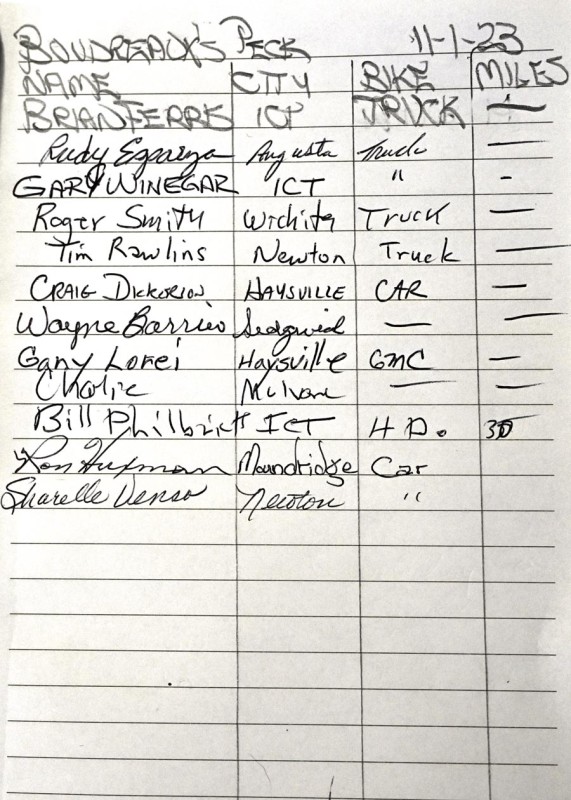 BOUDREAUX'S PECK 11-1-23
NAME CITY BIKE MILES
BRIAN FERRE ICT TRUCK —
Rudy Esparza Augusta Truck —
GARY WINEGAR ICT " -
Roger Smith Wichita Truck —
Tim Rawlins Newton Truck —
CRAIG DICKERSON HAYSVILLE CAR —
Wayne Barrier Sedgwick — —
Gany Lorei Haysville GMC —
Charlie Mulvane — —
Bill Philbrick ICT H D. 30
Ron Hufman Moundridge Car
Sharelle Denso Newton "